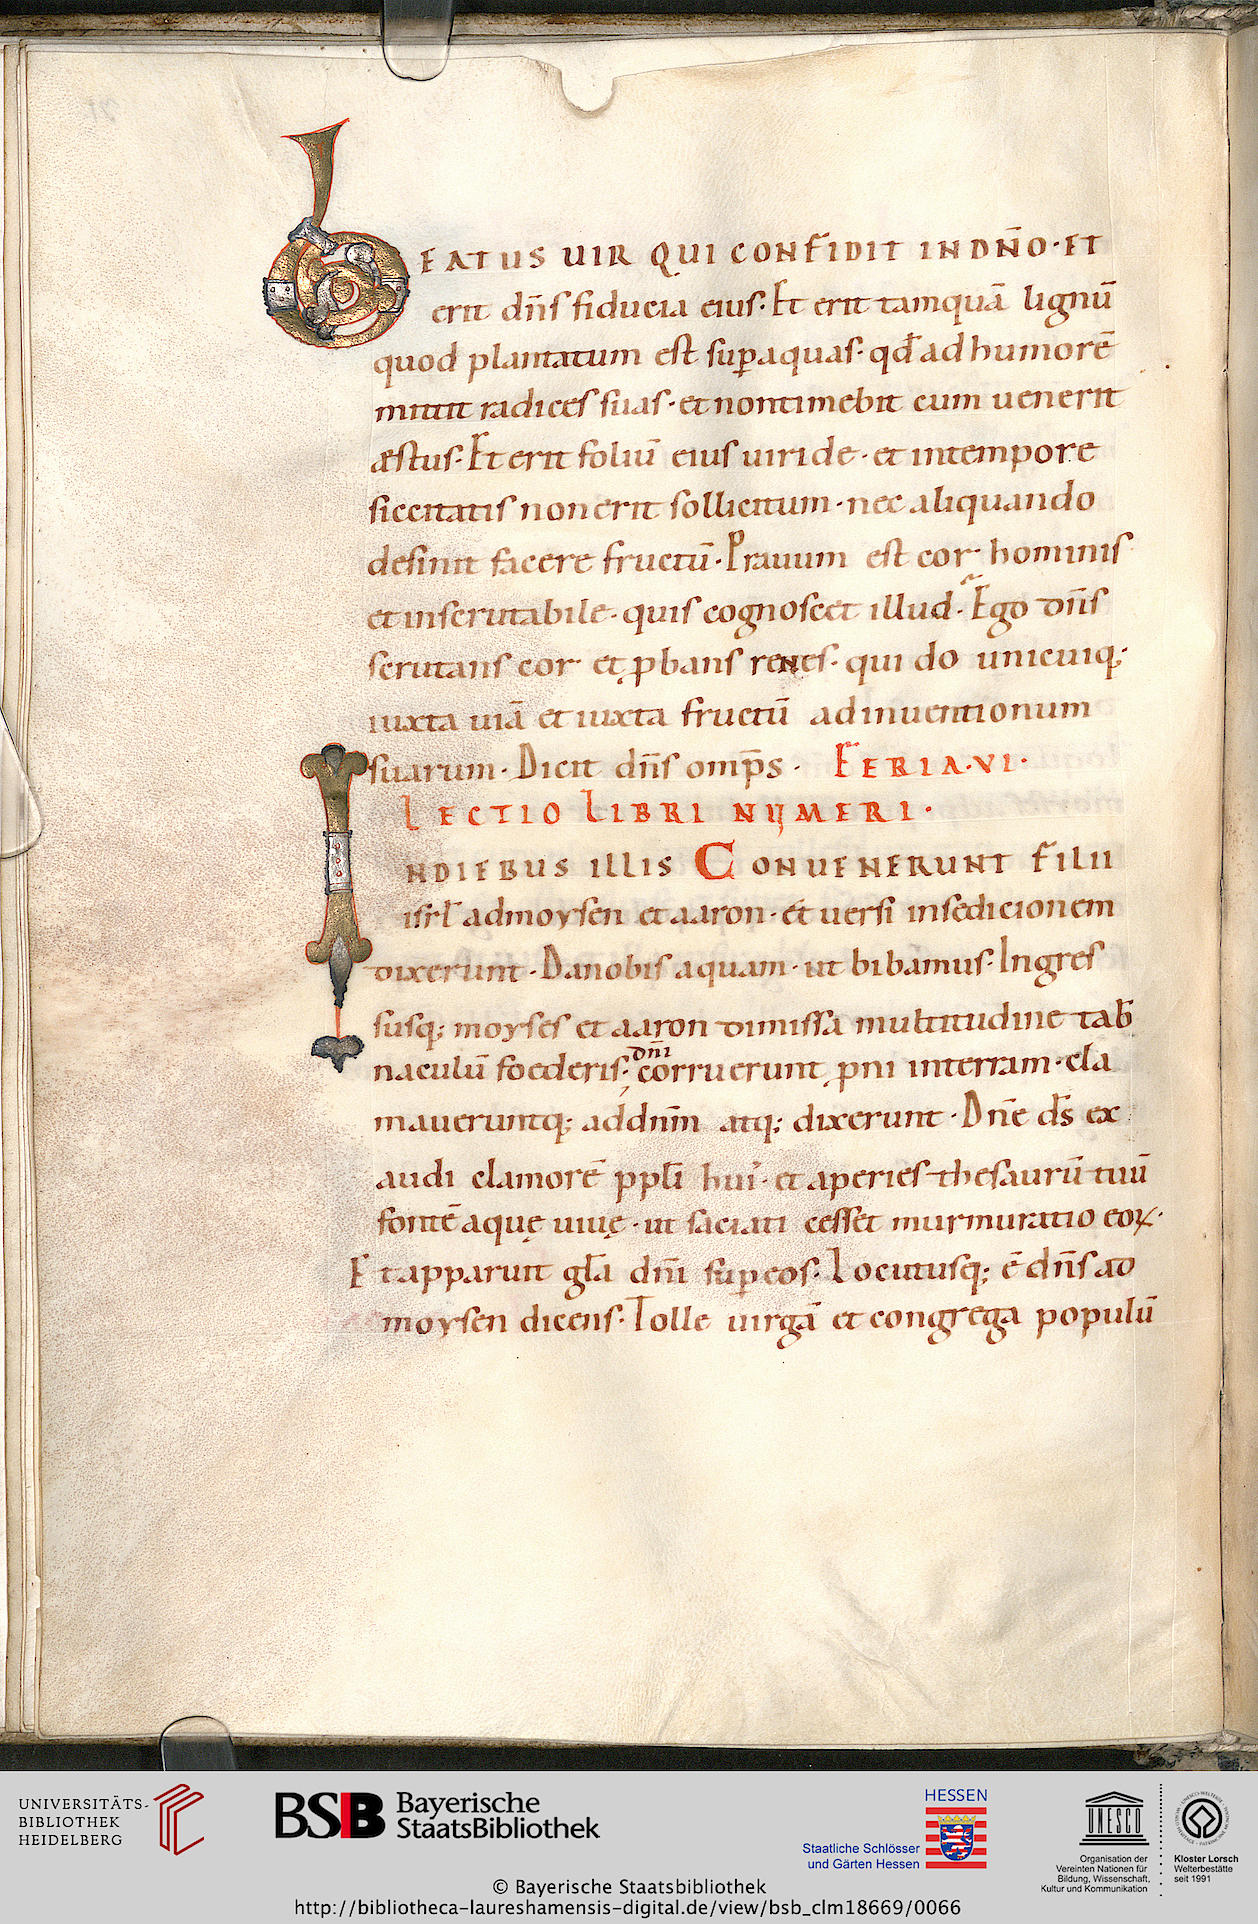 BEATUS UIR QUI CONFIDIT IN DÑO· ET
erit dñs fiducia eius· Et erit tamquā lignū
quod plantatum est sup̱ aquas· qđ ad humorē
mittit radices suas· et non timebit cum uenerit
æstus· Et erit foliū eius uiride· et in tempore
siccitatis non erit sollicitum· nec aliquando
desinit facere fructū· Prauum est cor hominis
et inscrutabile· quis cognoscet illud· Ego dñs
scrutans cor et ꝓbans renes· qui do unicuiq;
iuxta uiā et iuxta fructū adinuentionum
suarum· Dicit dñs omp̄s· FERIA·VI·
LECTIO LIBRI NUMERI·
IN DIEBUS ILLIS CONUENERUNT FILII
isrł ad moysen et aaron· et uersi in sedicionem
dixerunt· Da nobis aquam· ut bibamus· Ingres
susq; moyses et aaron dimissa multitudine tab̄
naculū foederis· corruerunt ꝓni in terram· cla
dñi
maueruntq; ad dnm̄ atq; dixerunt· Dñe ds̄ ex
audi clamorē ppłi hui᾽· et aperies thesaurū tuū
fontē aquę uiuę· ut saciati cesset murmuratio eoꝝ·
Et apparuit gła dñi sup̱ eos· Locutusq; ē dñs ad
moysen dicens· Tolle uirgā et congrega populū
UNIVERSITÄTS-
BIBLIOTHEK
HEIDELBERG
BSB Bayerische
StaatsBibliothek
HESSEN
Staatliche Schlösser
und Gärten Hessen
UNESCO
Organisation der
Vereinten Nationen für
Bildung, Wissenschaft,
Kultur und Kommunikation
Kloster Lorsch
Welterbestätte
seit 1991
© Bayerische Staatsbibliothek
http://bibliotheca-laureshamensis-digital.de/view/bsb_clm18669/0066